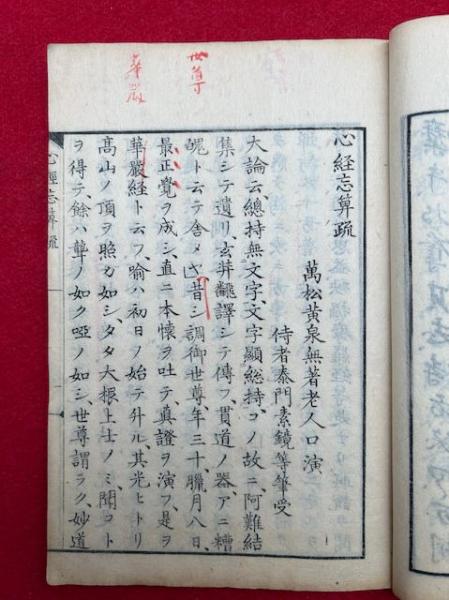 心経忘算疏
萬松黄泉無著老人口演
侍者泰門素鏡等筆受
大論云總持無文字、文字顯総持、コノ故ニ阿難結
集シテ遺リ、玄弉翻譯シテ傳フ、貫道ノ器、アニ糟
魄ト云テ舎メヤ、昔シ調御世尊、年三十、臘月八日、
最正覺ヲ成シ、直ニ本懐ヲ吐テ、真證ヲ演フ、是ヲ
華嚴経ト云フ、喩ハ初日ノ始テ升ル其光ヒトリ
髙山ノ頂ヲ照カ如シ、タダ大根上士ノミ聞コト
ヲ得テ、餘ハ聾ノ如ク啞ノ如シ、世尊謂ラク、妙道
世尊
華嚴
心經忘算疏